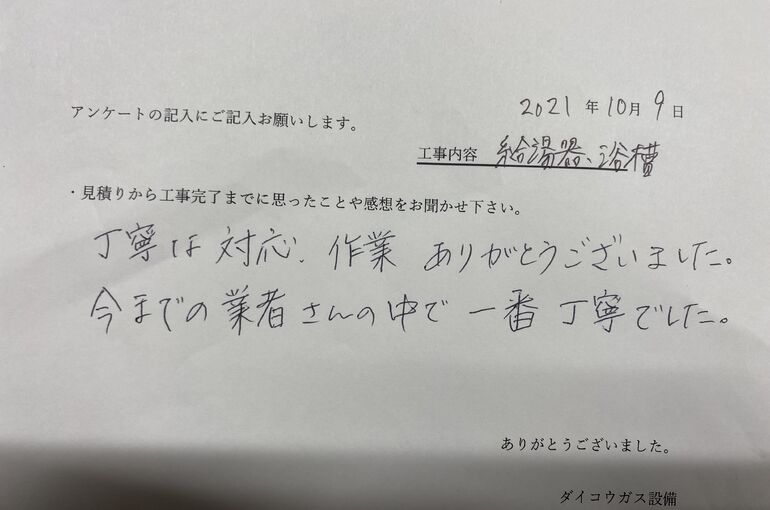 2021年10月9日
アンケートの記入にご記入お願いします。
工事内容 給湯器、浴槽
・見積りから工事完了までに思ったことや感想をお聞かせ下さい。
丁寧は対応、作業 ありがとうございました。
今までの業者さんの中で 一番 丁寧でした。
ありがとうございました。
ダイコウガス設備